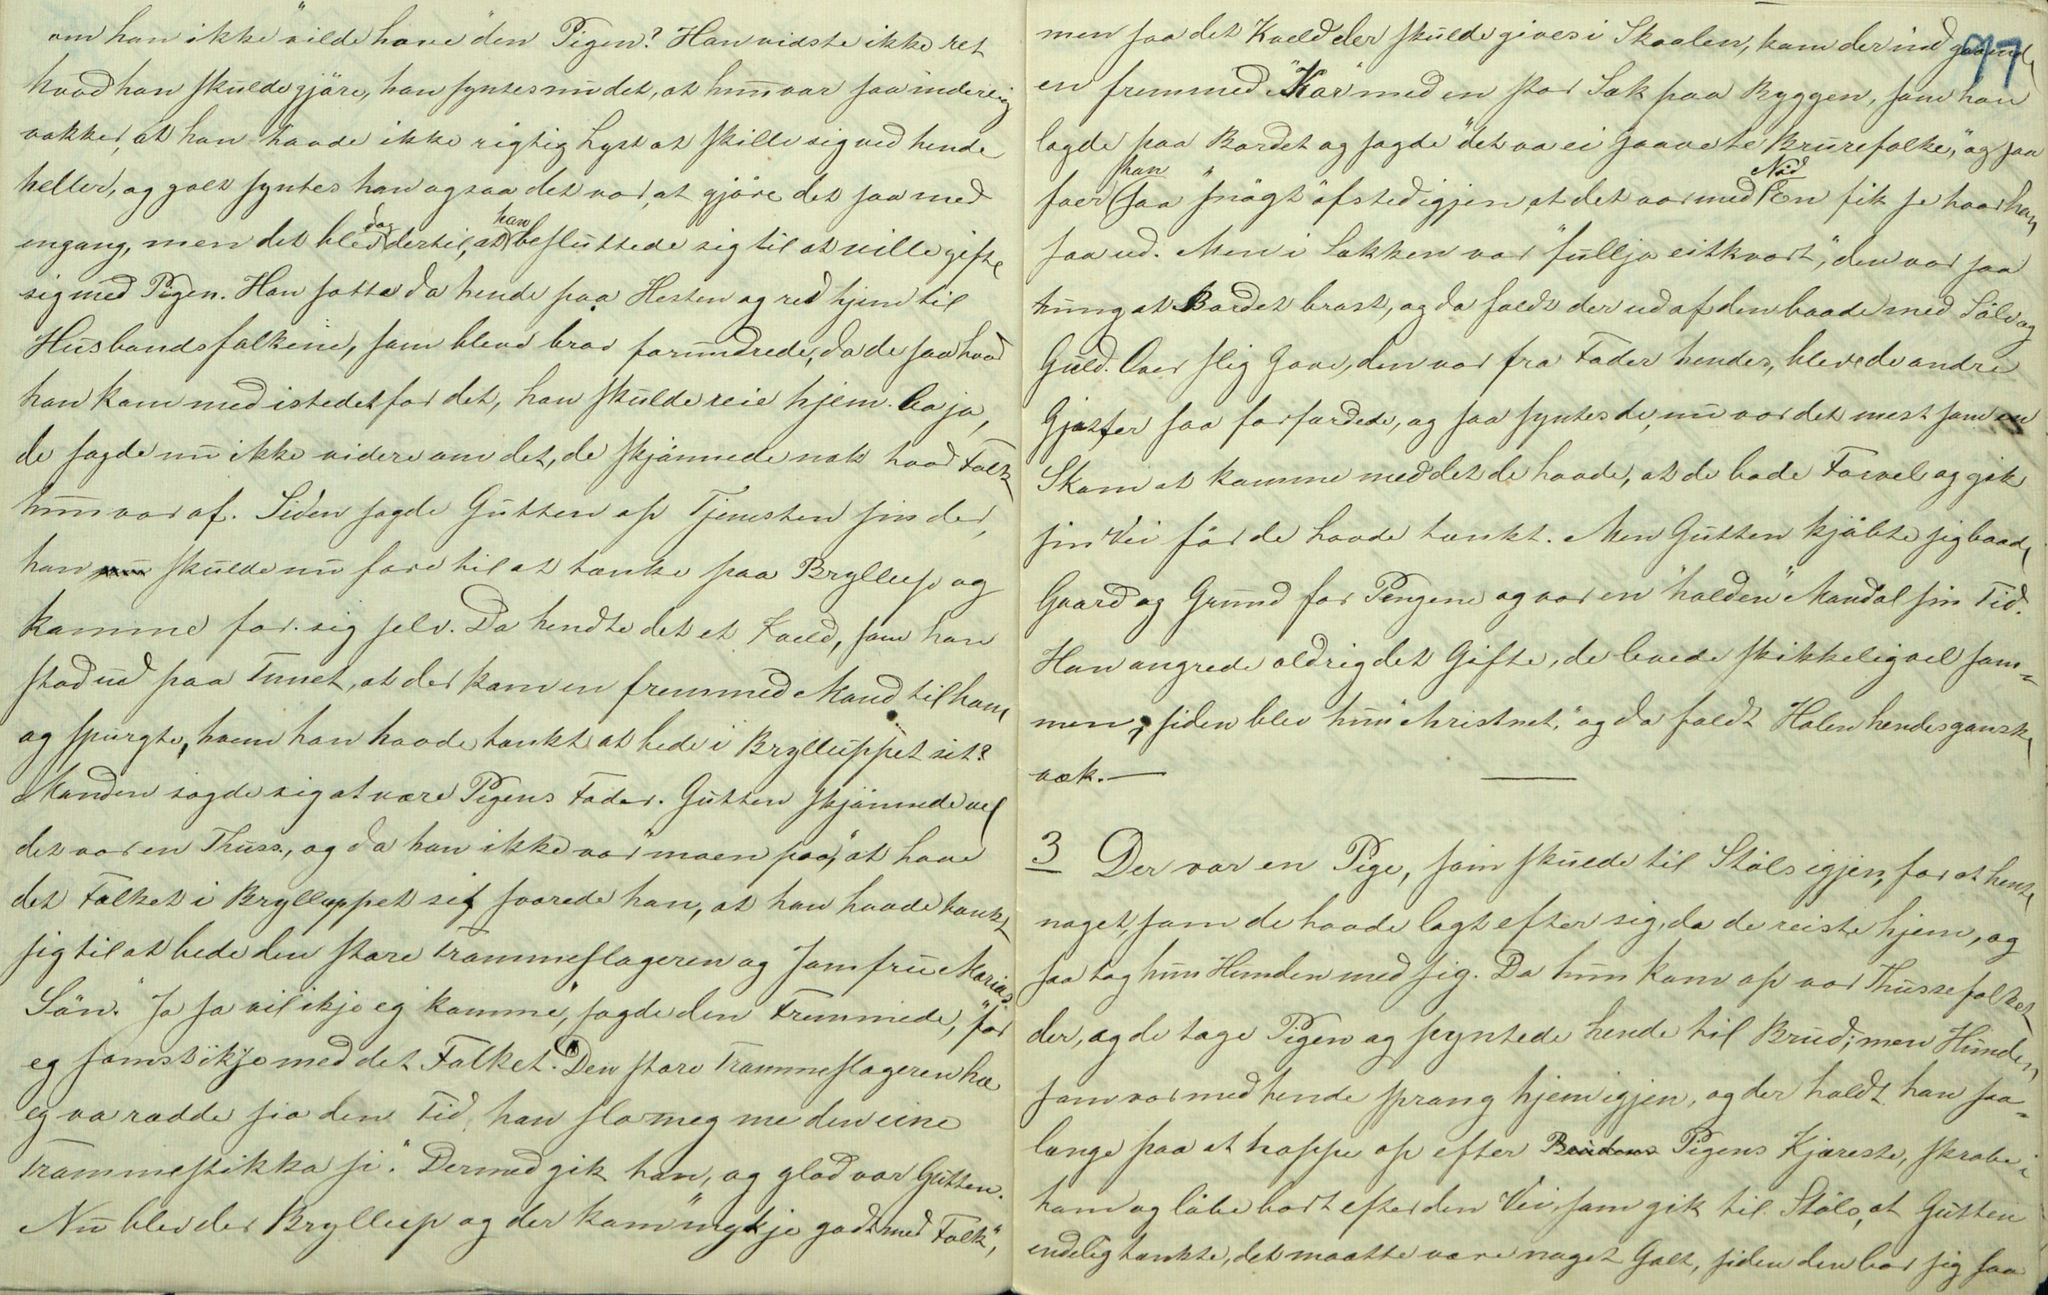 om han ikke "vilde have" den Pigen? Han vidste ikke ret
hvad han skulde gjöre, han syntes nu det, at hun var saa inderlig
vakker, at han havde ikke rigtig Lyst at skille sig ved hende
heller, og galt syntes han ogsaa det var, at gjöre det saa med
engang, men det blev da dertil, at han besluttede sig til at ville gifte
sig med Pigen. Han satte da hende paa Hesten og red hjem til
Husbondsfolkene, som bleve brav forundrede, da de saa hvad
han kom med istedetfor det, han skulde reie hjem. Aa ja,
de sagde nu ikke videre om det, de skjönnede nok hvad Folk
hun var af. Siden sagde Gutten op Tjenesten sin der,
han skulde nu fare til at tænke paa Bryllup og
komme for sig selv. Da hendte det et Kveld, som han
stod ud paa Tunet, at der kom en fremmed Mand til ham
og spurgte, hvem han havde tænkt at bede i Bryllüppet sit?
Manden sagde sig at være Pigens Fader. Gutten skjönnede vel
det var en Thuss, og da han ikke var "moen paa", at have
det Folket i Brylluppet sit svarede han, at han havde tænkt
sig til at bede den store Trommeslageren og Jomfru Marias
Sön. "Ja so vil ikje eg komme," sagde den Fremmede, "for
eg samst ikje med det Folket. Den store Trommeslageren hæ
eg va rædde sia den Tid, han slo meg me den eine
Trommestikka si." Dermed gik han, og glad var Gutten.
Nu blev der Bryllup og der kom "mykje godt med Folk",
77
men saa det Kveld der skulde gives i Skaalen, kom der ind gaaende
en fremmed "Kar" med en stor Sæk paa Ryggen, som han
lagde paa Bordet og sagde "det va ei Gaave te Brurefolke," og saa
foer han saa "snögt" afsted igjen, at det var med Nöd En fik se hvor han
saa ud. Men i Sækken var "fullja eitkvart", den var saa
tung at Bordet brast, og da faldt der ud af den baade med Sölv og
Guld. Over slig Gave, den var fra Fader hendes, bleve de andre
Gjæster saa forfærdede, og saa syntes de, nu var det mest som en
Skam at komme med det de havde, at de bade Farvel og gik
sin Vei för de havde tænkt. Men Gutten kjöbte sig baade
Gaard og Grund for Pengene og var en "halden" Mand al sin Tid.
Han angrede aldrig det Gifte, de levede skikkelig vel sam-
men, siden blev hun "christnet," og da faldt Halen hendes ganske
væk. —
3 Der var en Pige, som skulde til Stöls igjen, for at hente
noget, som de havde lagt efter sig, da de reiste hjem, og
saa tog hun Hunden med sig. Da hun kom op var Thussefolket
der, og de toge Pigen og pyntede hende til Brud; men Hunden,
som var med hende sprang hjem igjen, og der holdt han saa-
længe paa at hoppe op efter Brudens Pigens Kjæreste, skrabe i
ham og löbe bort efter den Vei, som gik til Stöls, at Gutten
endelig tænkte, det maatte være noget Galt, siden den bar sig saa